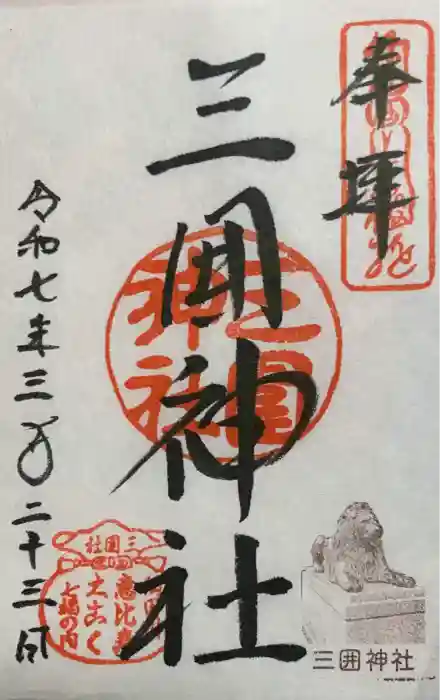 奉拝
三囲神社
三圍神社
令和七年三月二十三日
三囲社
恵比寿
大こく
七福の内
三囲神社